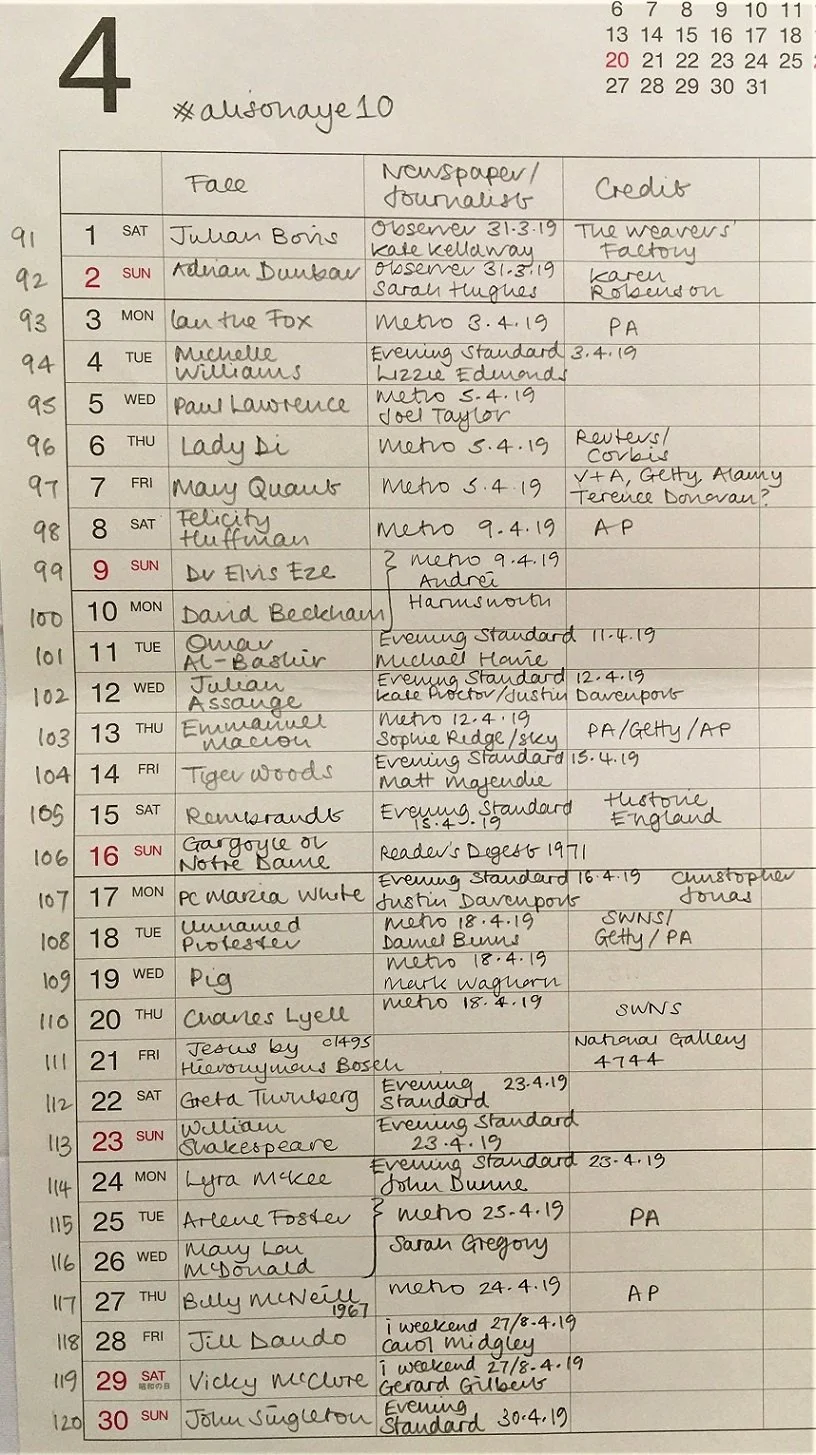 4
6 7 8 9 10 11
13 14 15 16 17 18
20 21 22 23 24 25
27 28 29 30 31
#alisonaye10
Face Newspaper/ Credit
Journalist
91 1 SAT Julian Bovis Observer 31.3.19 The Weavers'
Kate Kellaway Factory
92 2 SUN Adrian Dunbar Observer 31.3.19 Karen
Sarah Hughes Robinson
93 3 MON Ian the Fox Metro 3.4.19 PA
94 4 TUE Michelle Evening Standard 3.4.19
Williams Lizzie Edmonds
95 5 WED Paul Lawrence Metro 5.4.19
Joel Taylor
96 6 THU Lady Di Metro 5.4.19 Reuters/
Corbis
97 7 FRI Mary Quant Metro 5.4.19 V+A, Getty, Alamy
Terence Donovan?
98 8 SAT Felicity Metro 9.4.19 AP
Huffman
99 9 SUN Dr Elvis Eze Metro 9.4.19
Andrei
100 10 MON David Beckham Harmsworth
101 11 TUE Omar Evening Standard 11.4.19
Al-Bashir Michael Howie
102 12 WED Julian Evening Standard 12.4.19
Assange Kate Proctor/Justin Davenport
103 13 THU Emmanuel Metro 12.4.19 PA/Getty/AP
Macron Sophie Ridge/Sky
104 14 FRI Tiger Woods Evening Standard 15.4.19
Matt Majendie
105 15 SAT Rembrandt Evening Standard Historic
15.4.19 England
106 16 SUN Gargoyle of Reader's Digest 1971
Notre Dame
107 17 MON PC Maria White Evening Standard 16.4.19 Christopher
Justin Davenport Jonas
108 18 TUE Unnamed Metro 18.4.19 SWNS/
Protester Daniel Binns Getty/PA
109 19 WED Pig Metro 18.4.19
Mark Waghorn
110 20 THU Charles Lyell Metro 18.4.19 SWNS
111 21 FRI Jesus by c1495 National Gallery
Hieronymous Bosch 4744
112 22 SAT Greta Thunberg Evening 23.4.19
Standard
113 23 SUN William Evening Standard
Shakespeare 23.4.19
114 24 MON Lyra McKee Evening Standard 23.4.19
John Dunne
115 25 TUE Arlene Foster Metro 25.4.19 PA
116 26 WED Mary Lou Sarah Gregory
McDonald
117 27 THU Billy McNeill Metro 24.4.19 AP
1967
118 28 FRI Jill Dando i weekend 27/8.4.19
Carol Midgley
119 29 SAT Vicky McClure i weekend 27/8.4.19
昭和の日 Gerard Gilbert
120 30 SUN John Singleton Evening
Standard 30.4.19